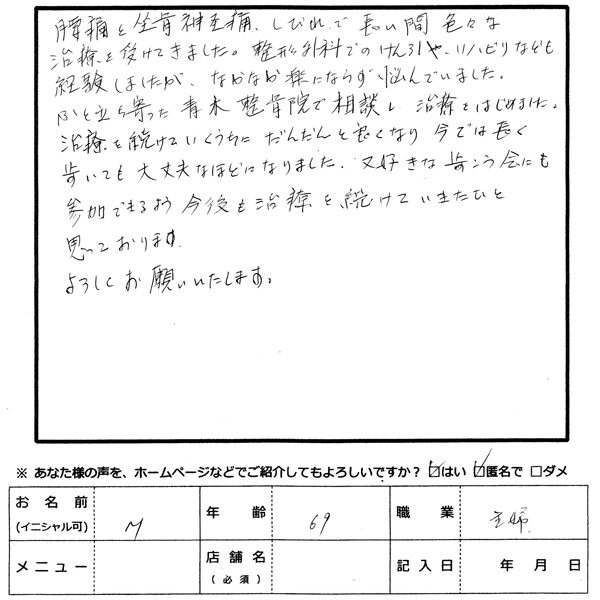 腰痛と坐骨神経痛、しびれで長い間色々な
治療を受けてきました。整形外科でのけん引や、リハビリなども
経験しましたが、なかなか楽にならず悩んでいました。
ふと立ち寄った青木整骨院で相談し治療をはじめました。
治療を続けていくうちにだんだんと良くなり今では長く
歩いても大丈夫なほどになりました、又好きな歩こう会にも
参加できるよう今後も治療を続けていきたいと
思っております
よろしくお願いいたします。
※ あなた様の声を、ホームページなどでご紹介してもよろしいですか? ☑はい ☑匿名で □ダメ
お名前 (イニシャル可) M 年齢 69 職業 主婦
メニュー 店舗名 (必須) 記入日 年 月 日